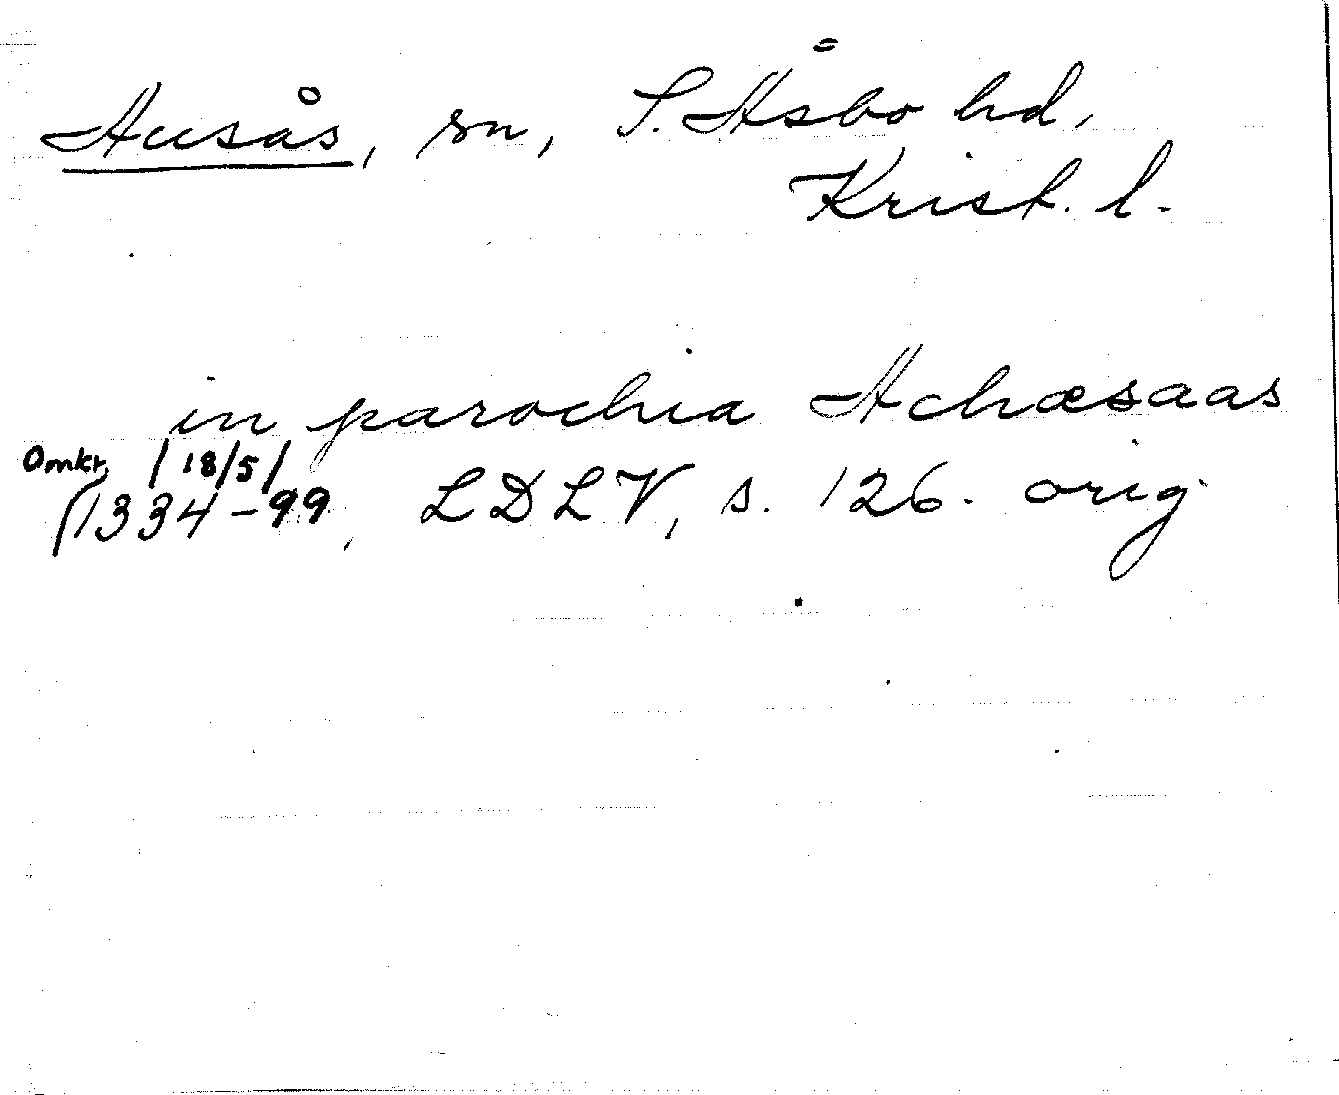 Ausås, sn, S. Åsbo hd,
Krist. l.
in parochia Achæsaas
Omkr. /18/5/
(1334-99, LDLV, s. 126. orig